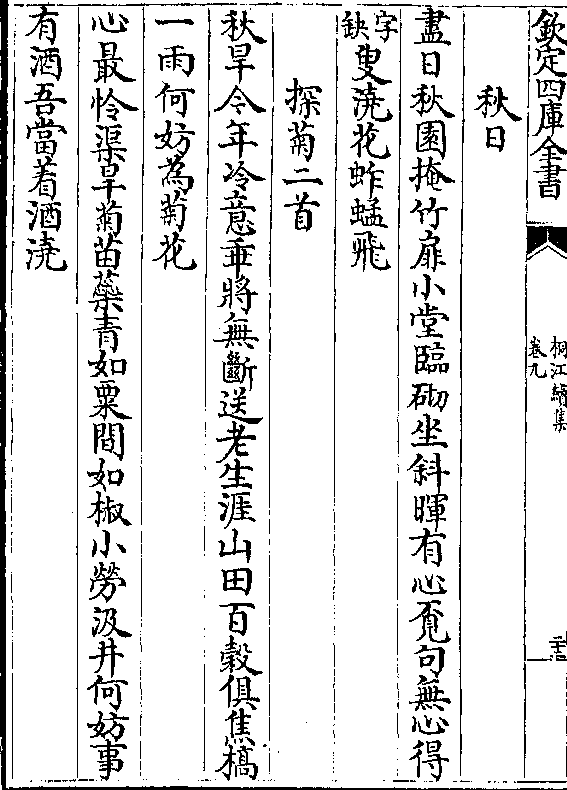 欽定四庫全書
桐江續集
卷九
秋日
盡日秋園掩竹扉小堂臨砌坐斜暉有心覔句無心得
字缺叟澆花蚱蜢飛
探菊二首
秋旱今年冷意乖將無斷送老生涯山田百穀俱焦槁
一雨何妨為菊花
心最怜渠旱菊苗蘂青如粟間如椒小勞汲井何妨事
有酒吾當着酒澆